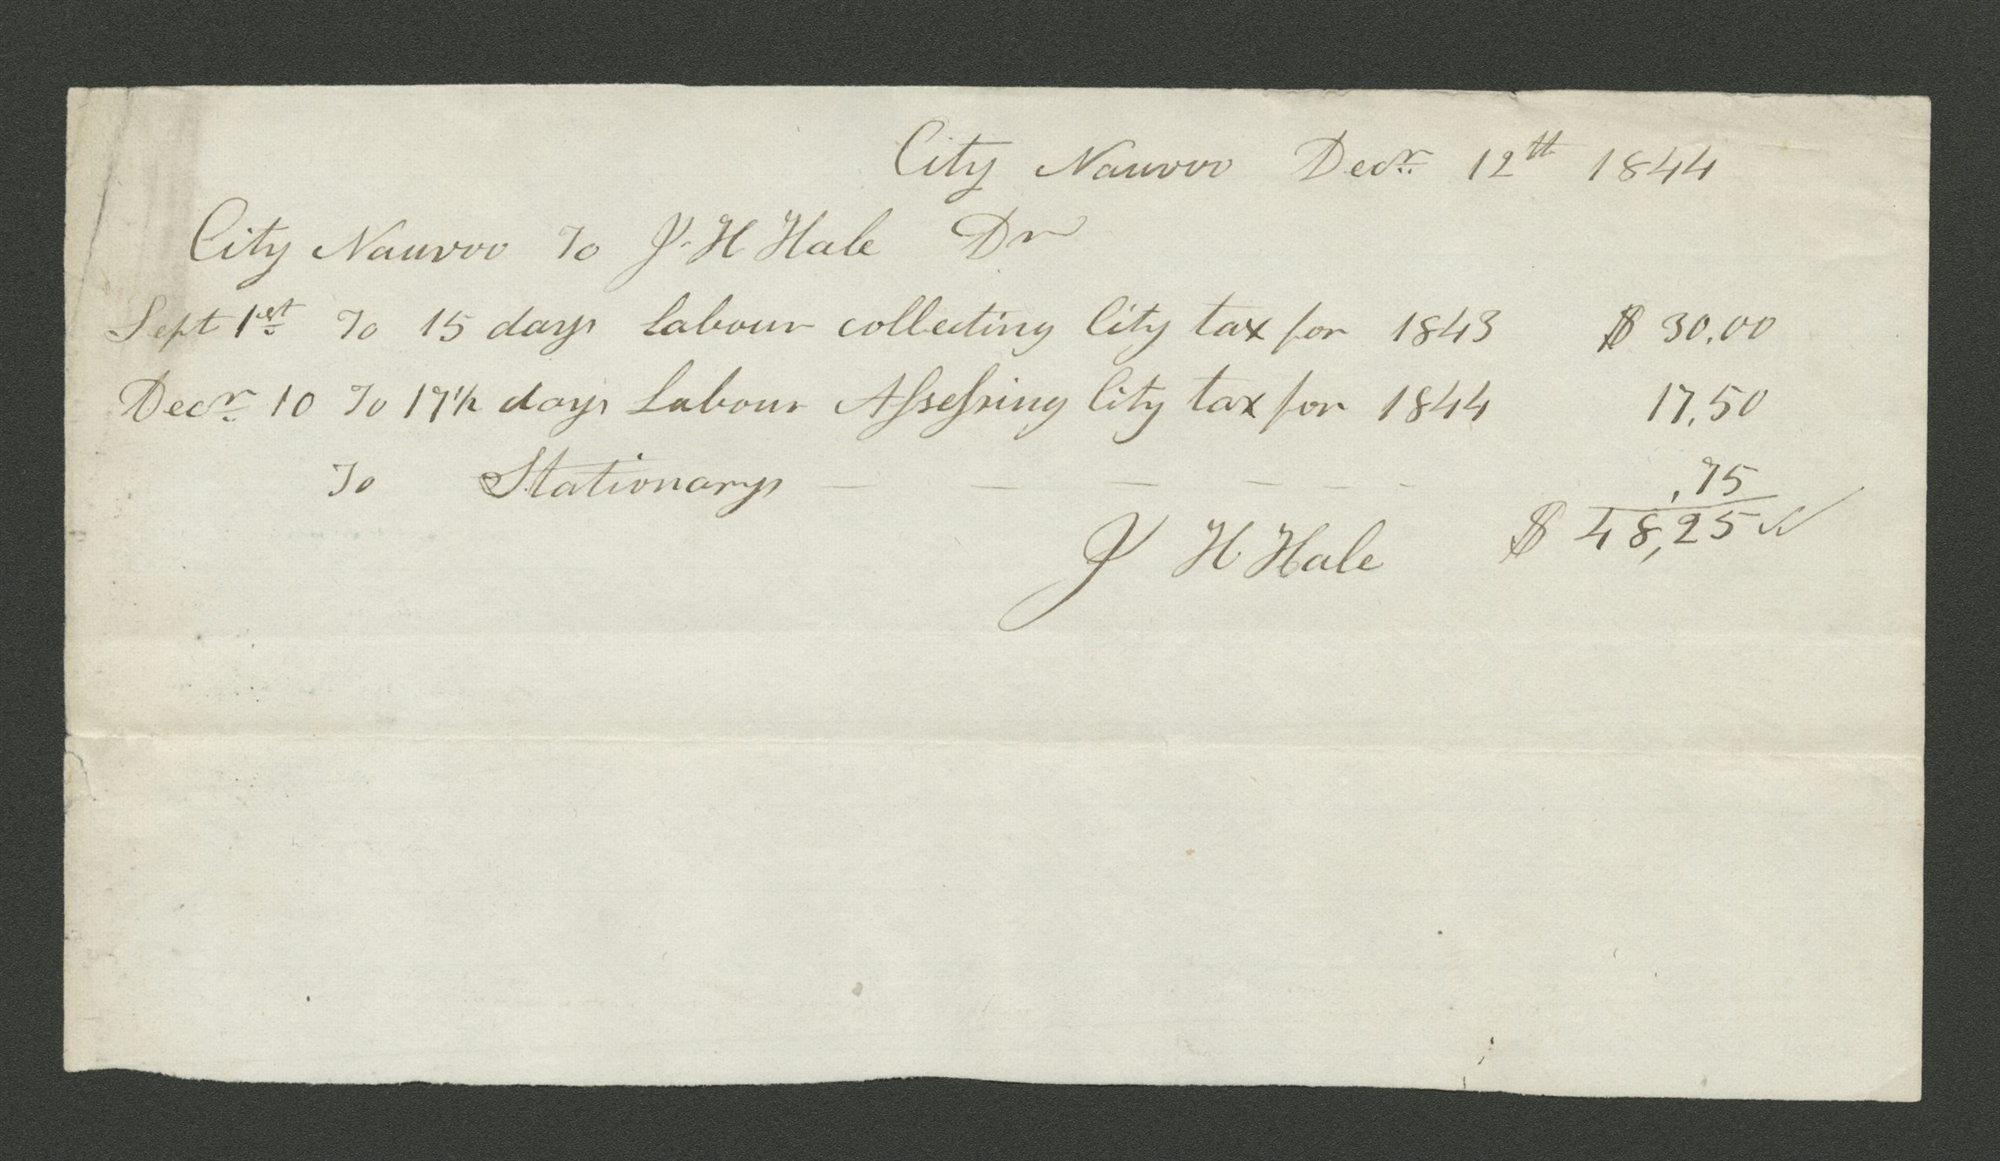 City Nauvoo Decr. 12th 1844
City Nauvoo To J. H Hale Dr
Sept 1st To 15 days labour collecting City tax for 1843 $ 30.00
Decr. 10 To 17 1/2 days Labour Assessing City tax for 1844 17.50
To Stationary — — — — — .75
J H Hale $ 48,25